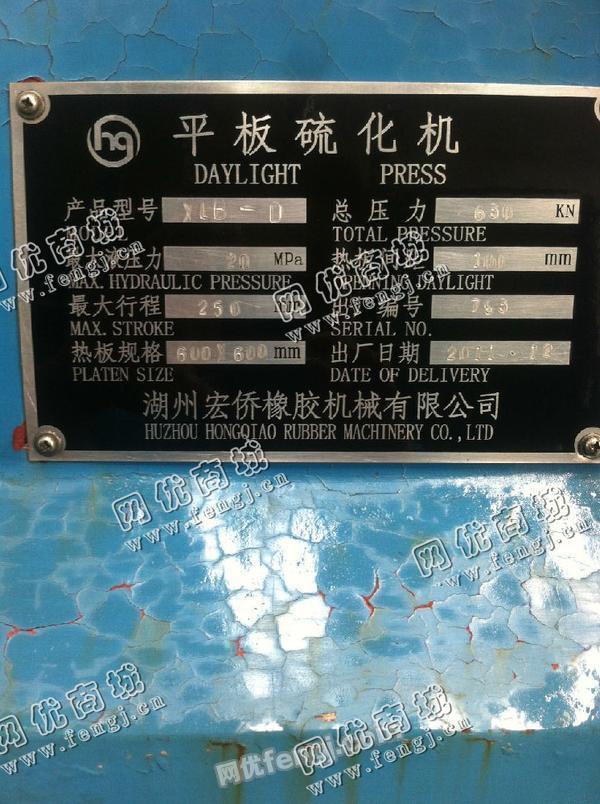 hg 平板硫化机
DAYLIGHT PRESS
产品型号 XLB-D 总压力 630 KN
TOTAL PRESSURE
压力 20 MPa 热板间距 mm
MAX. HYDRAULIC PRESSURE DAYLIGHT
最大行程 250 出厂编号
MAX. STROKE SERIAL NO.
热板规格 600X600 mm 出厂日期
PLATEN SIZE DATE OF DELIVERY
湖州宏侨橡胶机械有限公司
HUZHOU HONGQIAO RUBBER MACHINERY CO.,LTD
网优商城
www.fengj.cn
网优商城
www.fengj.cn
网优商城
www.fengj.cn
网优商城
www.fengj.cn
网优商城
www.fengj.cn
网优商城
www.fengj.cn
网优fengj.c